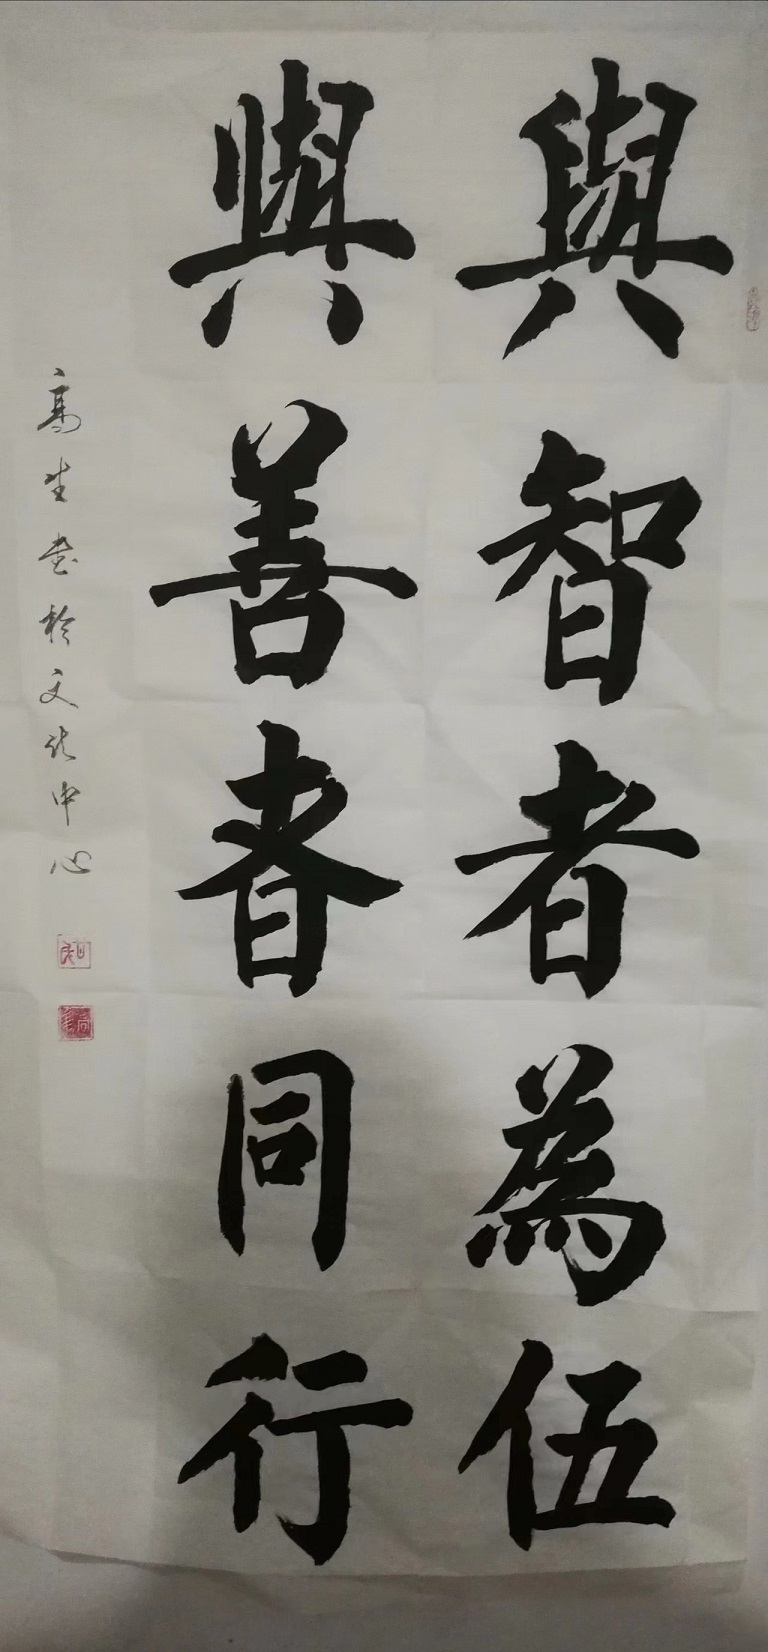 與智者為伍
與善者同行
高生书於文化中心